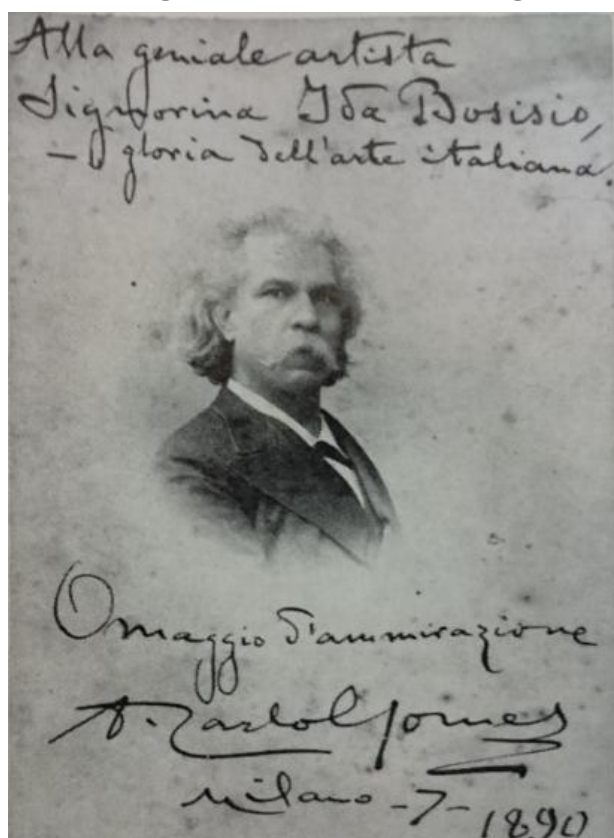 Alla geniale artista
Signorina Ida Bosisio,
– gloria dell'arte italiana.
Omaggio d'ammirazione
A. Carlo Gomes
Milano -7- 1890